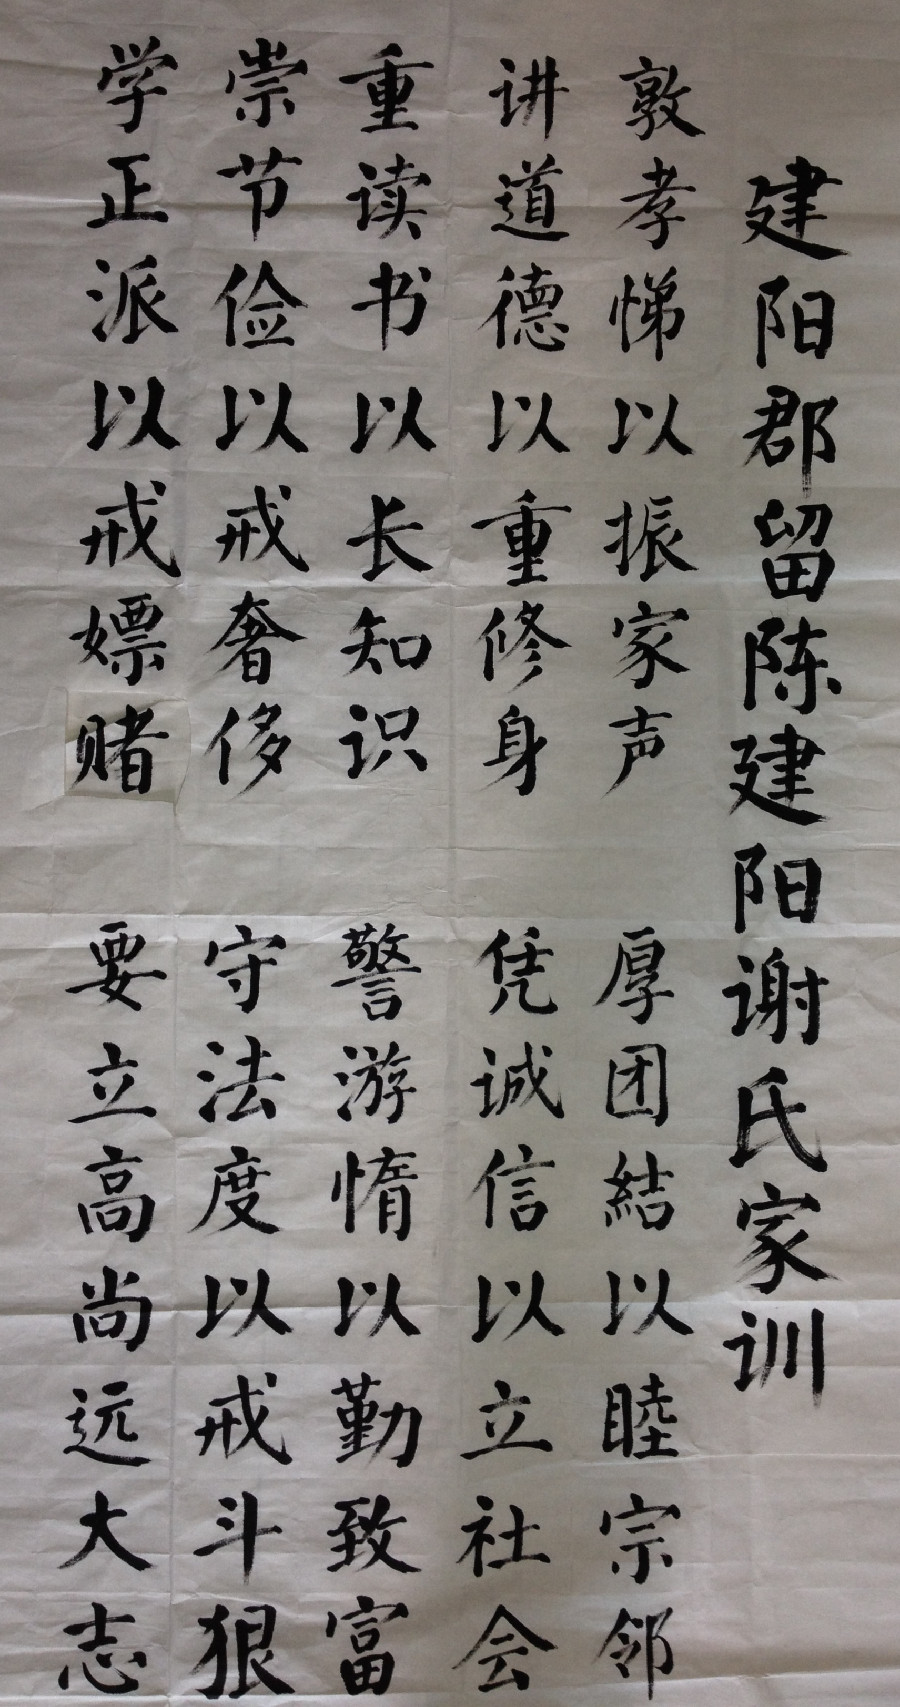 建阳郡留陈建阳谢氏家训
敦孝悌以振家声 厚团結以睦宗邻
讲道德以重修身 凭诚信以立社会
重读书以长知识 警游惰以勤致富
崇节俭以戒奢侈 守法度以戒斗狠
学正派以戒嫖赌 要立高尚远大志